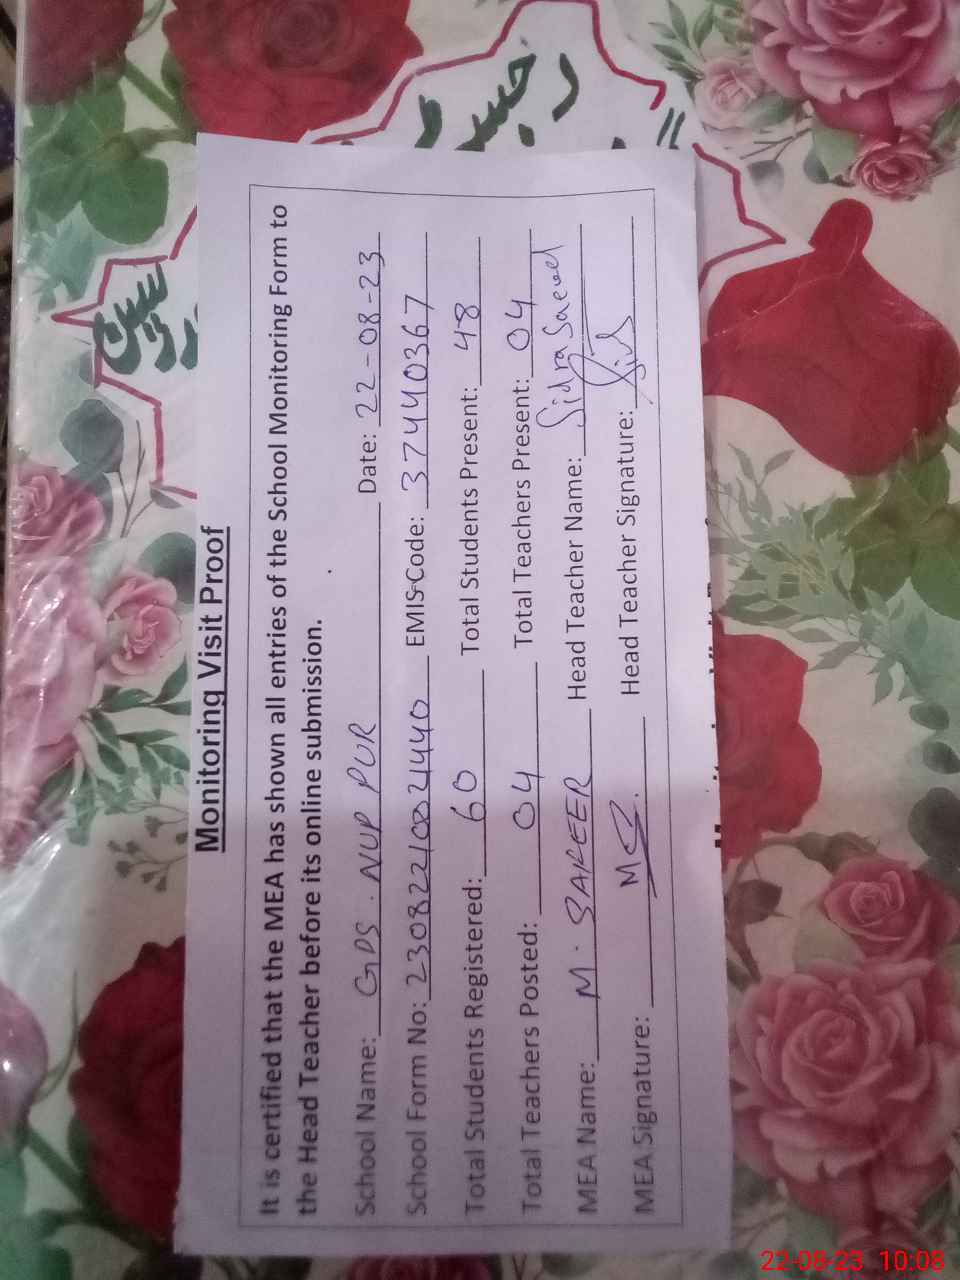 Monitoring Visit Proof
It is certified that the MEA has shown all entries of the School Monitoring Form to
the Head Teacher before its online submission.
School Name: GPS. NUP PUR Date: 22-08-23
School Form No: 230822100 EMIS Code: 37440367
Total Students Registered: 60 Total Students Present: 48
Total Teachers Posted: 04 Total Teachers Present: 04
MEA Name: M. SAFEER Head Teacher Name: Sidra Saeed
MEA Signature: Head Teacher Signature:
22-08-23 10:08